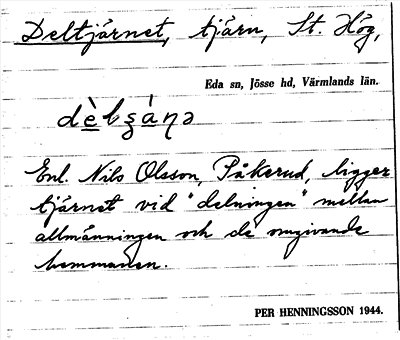 Deltjärnet, tjärn, St. Hög,
Eda sn, Jösse hd, Värmlands län.
Enl. Nils Olsson, Påkerud, ligger
tjärnet vid "delningen" mellan
allmänningen och de omgivande
hemmanen.
PER HENNINGSSON 1944.